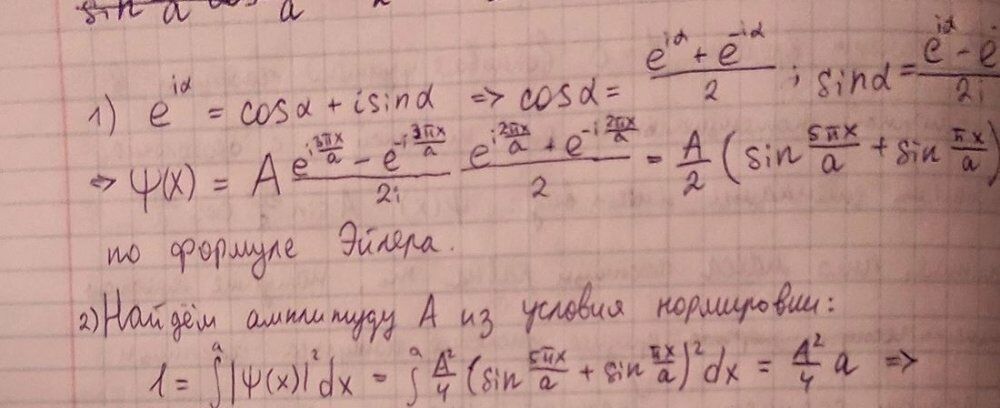 1) e^{iα} = cosα + isinα => cosα = \frac{e^{iα} + e^{-iα}}{2}; sinα = \frac{e^{iα} - e^{-}}{2i}
=> ψ(x) = A \frac{e^{i\frac{3πx}{a}} - e^{-i\frac{3πx}{a}}}{2i} \frac{e^{i\frac{2πx}{a}} + e^{-i\frac{2πx}{a}}}{2} = \frac{A}{2} (sin\frac{5πx}{a} + sin\frac{πx}{a})
по формуле Эйлера.
2) Найдём амплитуду A из условия нормировки:
1 = ∫^{a} |ψ(x)|^2 dx = ∫^{a} \frac{A^2}{4} (sin\frac{5πx}{a} + sin\frac{πx}{a})^2 dx = \frac{A^2}{4} a =>